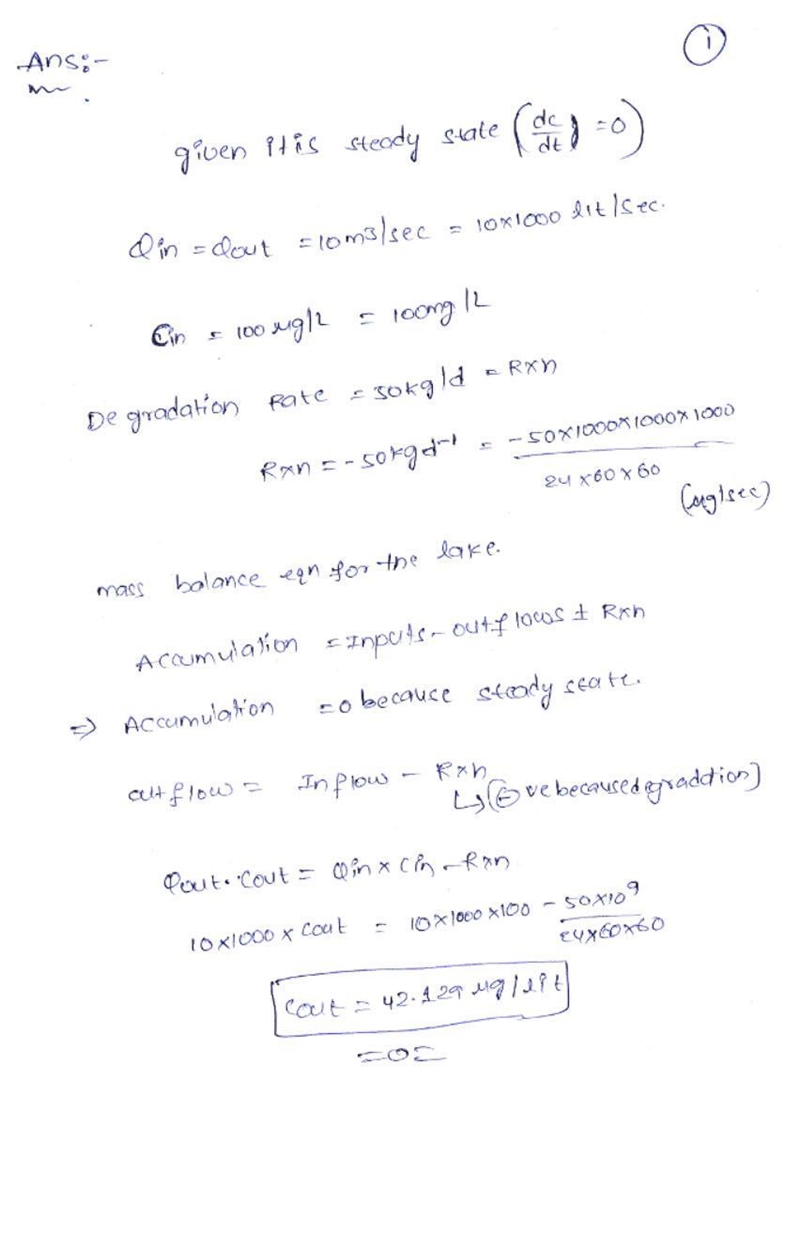 ①
Ans:-
given it is steady state (dc/dt) = 0)
Qin = Qout = 10m3/sec = 10x1000 lit/sec.
Cin = 100 µg/L = 100mg/L
Degradation Rate = 50kg/d = Rxn
Rxn = -50kgd⁻¹ = -50x1000x1000x1000 / 24x60x60 (µg/sec)
mass balance eqn for the lake.
Accumulation = Inputs - outflows ± Rxn
⇒ Accumulation = 0 because steady state.
outflow = Inflow - Rxn
↳ (⊖ve because degraddtion]
Qout. Cout = Qin x Cin - Rxn
10x1000 x Cout = 10x1000x100 - 50x10⁹ / 24x60x60
Cout = 42.129 µg/lit
=0=